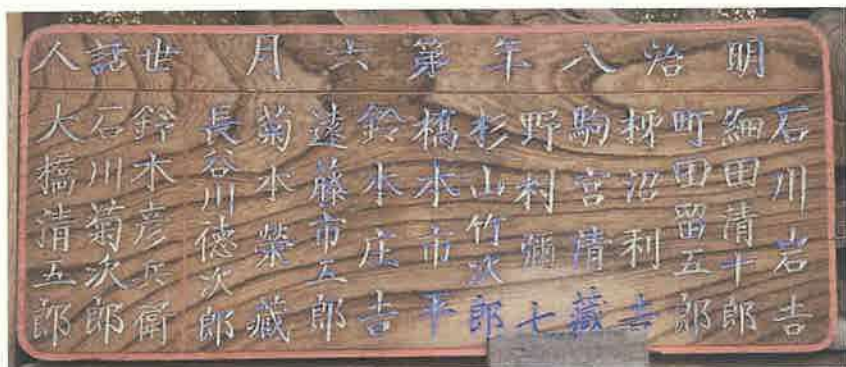 明治八年第六月
石川岩吉
細田清十郎
町田留五郎
栁沼利吉
駒宮清藏
野村彌七
杉山竹次郎
橋本市平
鈴木庄吉
遠藤市五郎
菊本榮藏
長谷川徳次郎
世話人
鈴木彦兵衛
石川菊次郎
大橋清五郎